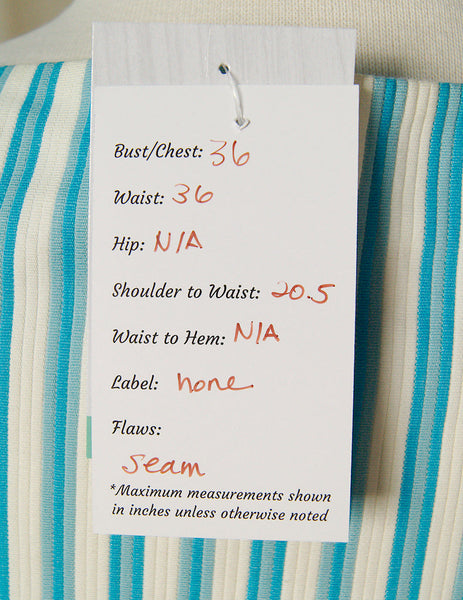 Bust/Chest: 36
Waist: 36
Hip: N/A
Shoulder to Waist: 20.5
Waist to Hem: N/A
Label: none
Flaws:
Seam
*Maximum measurements shown
in inches unless otherwise noted